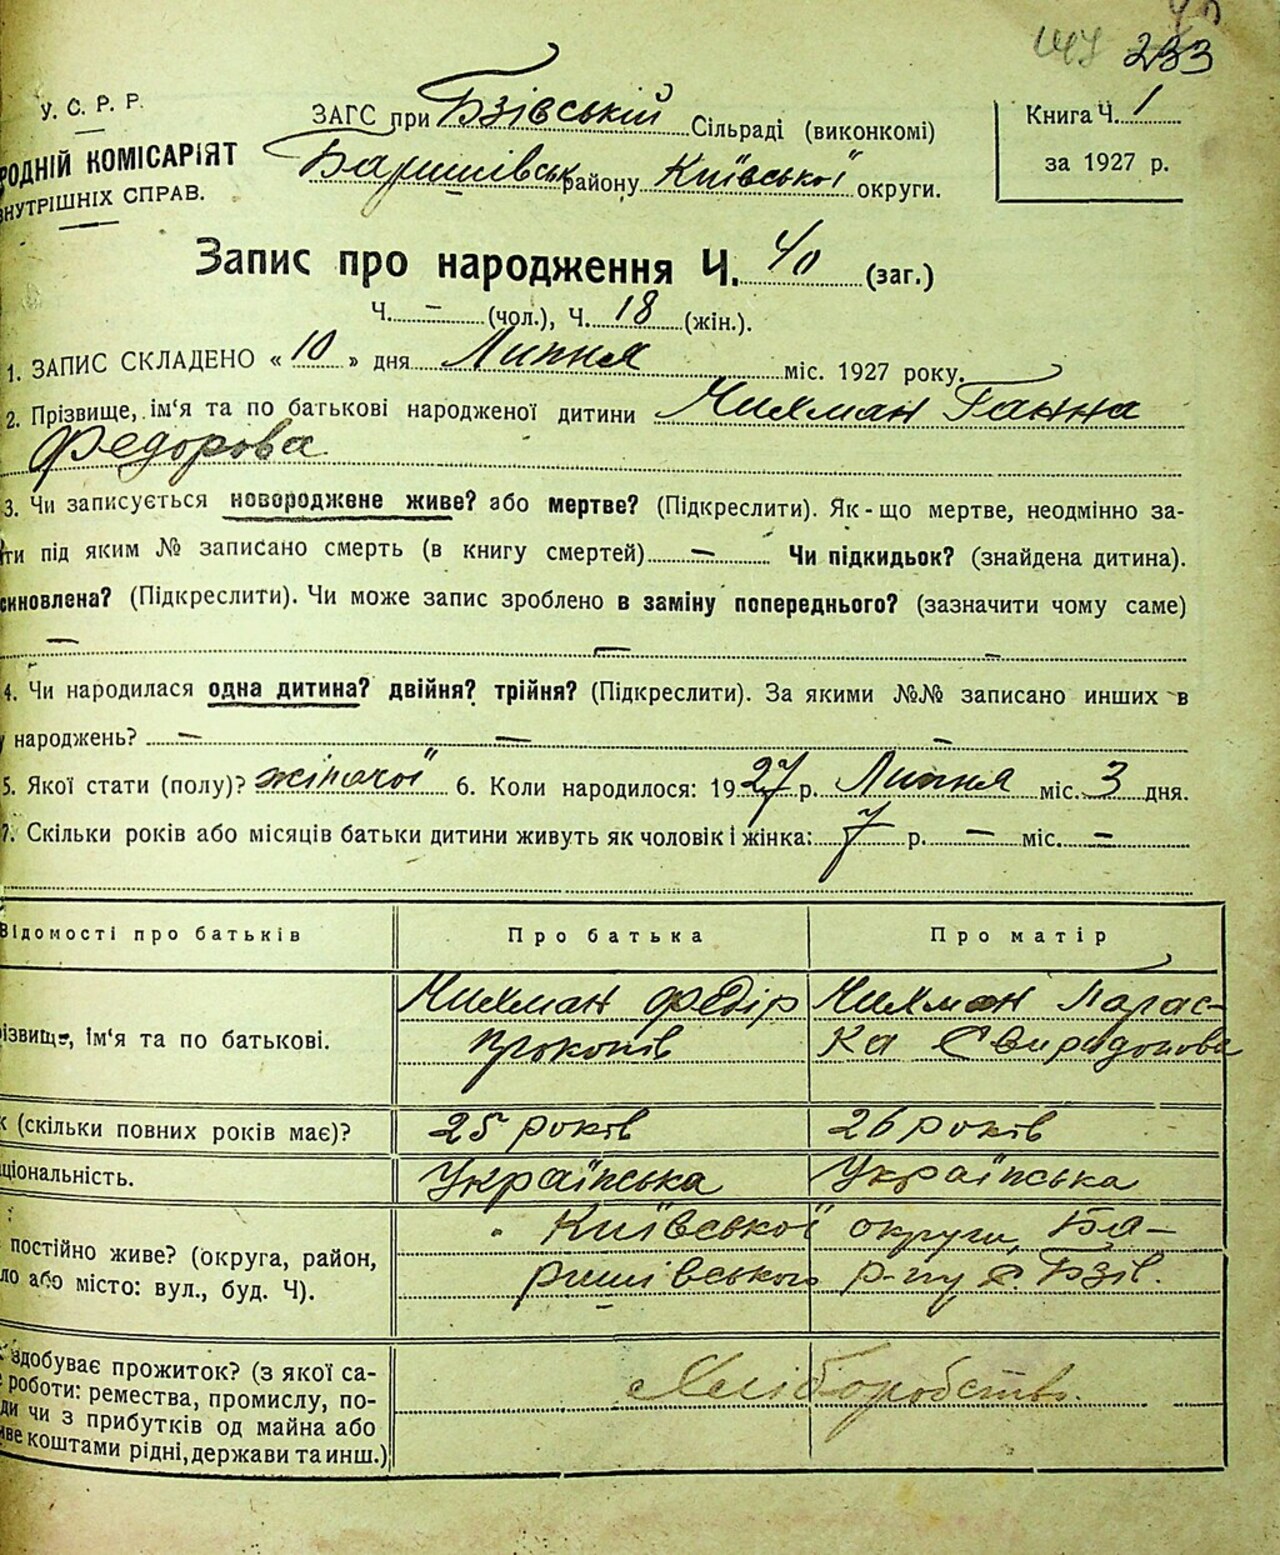 233
У. С. Р. Р.
РОДНІЙ КОМІСАРІЯТ
ВНУТРІШНІХ СПРАВ.
ЗАГС при Бзівській Сільраді (виконкомі)
Баришівськ району Київської округи.
Книга Ч. 1
за 1927 р.
Запис про народження Ч. 40 (заг.)
Ч. – (чол.), Ч. 18 (жін.).
1. ЗАПИС СКЛАДЕНО « 10 » дня Липня міс. 1927 року.
2. Прізвище, ім‘я та по батькові народженої дитини Чихман Ганна
Федорова
3. Чи записується новороджене живе? або мертве? (Підкреслити). Як-що мертве, неодмінно за-
ти під яким № записано смерть (в книгу смертей) – Чи підкидьок? (знайдена дитина).
синовлена? (Підкреслити). Чи може запис зроблено в заміну попереднього? (зазначити чому саме)
– – –
4. Чи народилася одна дитина? двійня? трійня? (Підкреслити). За якими №№ записано инших в
народжень? – – –
5. Якої стати (полу)? жіночої 6. Коли народилося: 1927 р. Липня міс. 3 дня.
7. Скільки років або місяців батьки дитини живуть як чоловік і жінка: 7 р. – міс. –
Відомості про батьків Про батька Про матір
різвище, ім‘я та по батькові. Чихман Федір Чихман Парас-
Прокопів ка Свиридонова
к (скільки повних років має)? 25 років 26 років
ціональність. Українська Українська
постійно живе? (округа, район, Київської округи, Ба-
ло або місто: вул., буд. Ч). ришівського р-ну с. Бзів.
здобуває прожиток? (з якої са-
роботи: ремества, промислу, по- Хліборобство.
ди чи з прибутків од майна або
иве коштами рідні, держави та инш.)